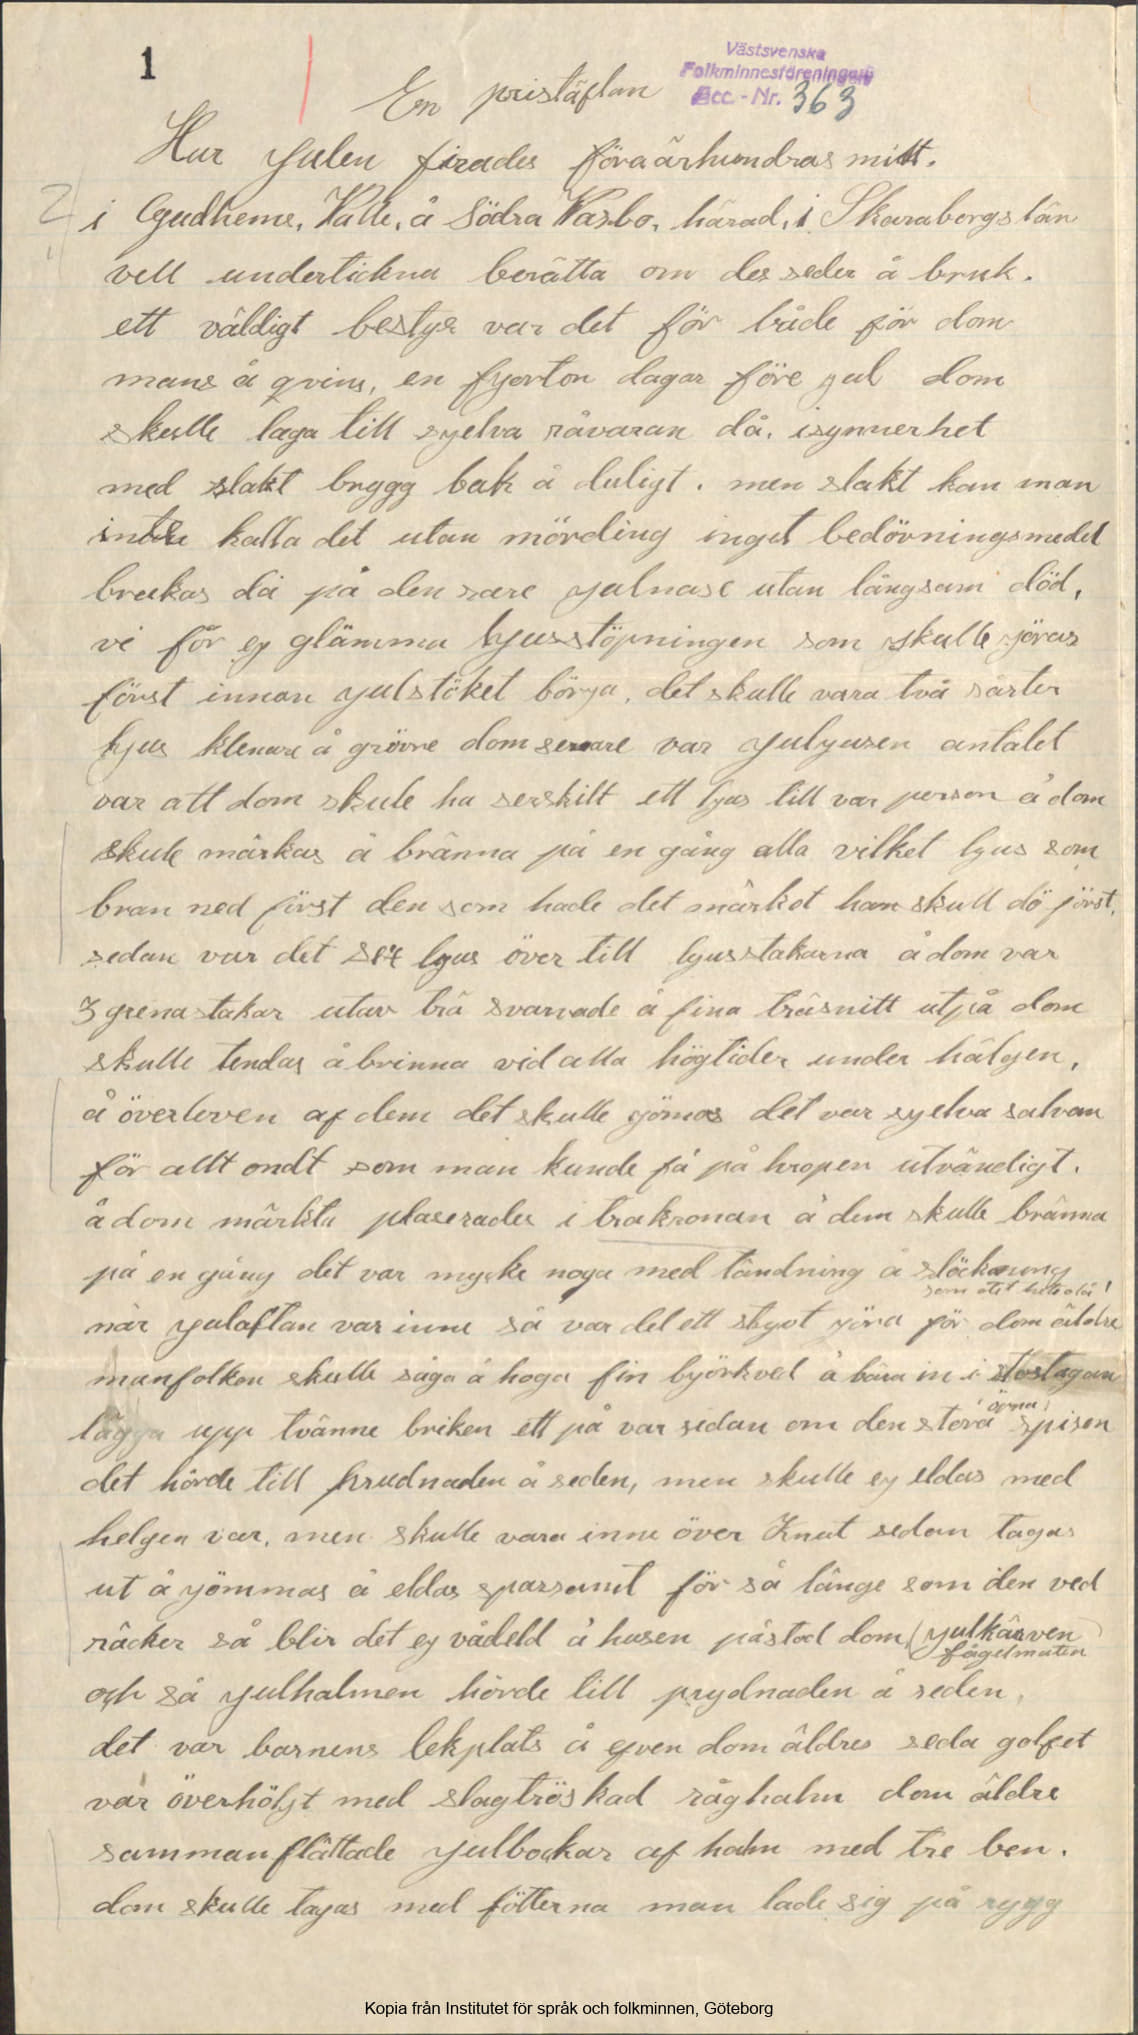 1
Västsvenska
Folkminnesföreningen
Acc.-Nr. 363
En pristäflan
Hur Julen firades föra århundras mitt.
i Gudhems, Valle, å Södra Varsbo, härad, i Skaraborgs län
vell undertickna berätta om des seder å bruk.
ett väldigt bestyr var det för både för dom
mans å qvins, en fjorton dagar före jul dom
skulle laga till syelva råvaran då, isynnerhet
med slakt brygg bak å duligt. men slakt kan man
inte kalla det utan mörding inget bedövningsmedel
brukas då på den rare julnase utan långsam död,
vi för ej glämma lyusstöpningen som skulle yöras
först innan yulstöket börya, det skulle vara två sårter
lyus klenare å grövre dom senare var yulyusen antalet
var att dom skule ha serskilt ett lyus till var person å dom
skule märkas å bränna på en gång alla vilket lyus som
bran ned först den som hade det märket han skull dö först,
sedan var det sex lyus över till lyusstakarna å dom var
3 grenastakar utav trä svarvade å fina träsnitt utpå dom
skulle tendas å brinna vid alla högtider under hälgen,
å överleven af dem det skulle yömas det var syelva salvan
för allt ondt som man kunde få på kropen utvändigt.
å dom märkta plaserades i trakronan å dem skulle bränna
på en gång det var mycke noga med tändning å släckning
som åtet hete då!
när yulaftan var inne så var del ett styvt yöra för dom äldre
manfolken skulle såga å hoga fin byörkved å bära in i stostugan
lägga upp tvänne briken ett på var sidan om den stora öpna spisen
det hörde till prudnaden å seden, men skulle ey eldas med
helgen var, men skulle vara inne över Knut sedan tagas
ut å yömmas å eldas sparsamt för så länge som den ved
räcker så blir det ey vådeld å husen påstod dom, (yulkärven
fågelmaten
och så yulhalmen hörde till prydnaden å seden,
det var barnens lekplats å eyven dom äldres seda golfvet
var överhölyt med slagtröskad råghalm dom äldre
sammanflättade yulbockar af halm med tre ben.
dom skulle tagas med fötterna man lade sig på rygg
Kopia från Institutet för språk och folkminnen, Göteborg